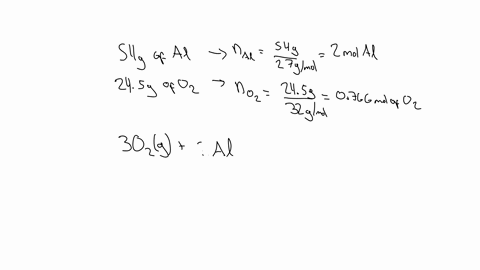 54g of Al → n_Al = 54g / 27g/mol = 2 mol Al
24.5g of O₂ → n_O₂ = 24.5g / 32g/mol = 0.766 mol of O₂
3O₂(g) + Al